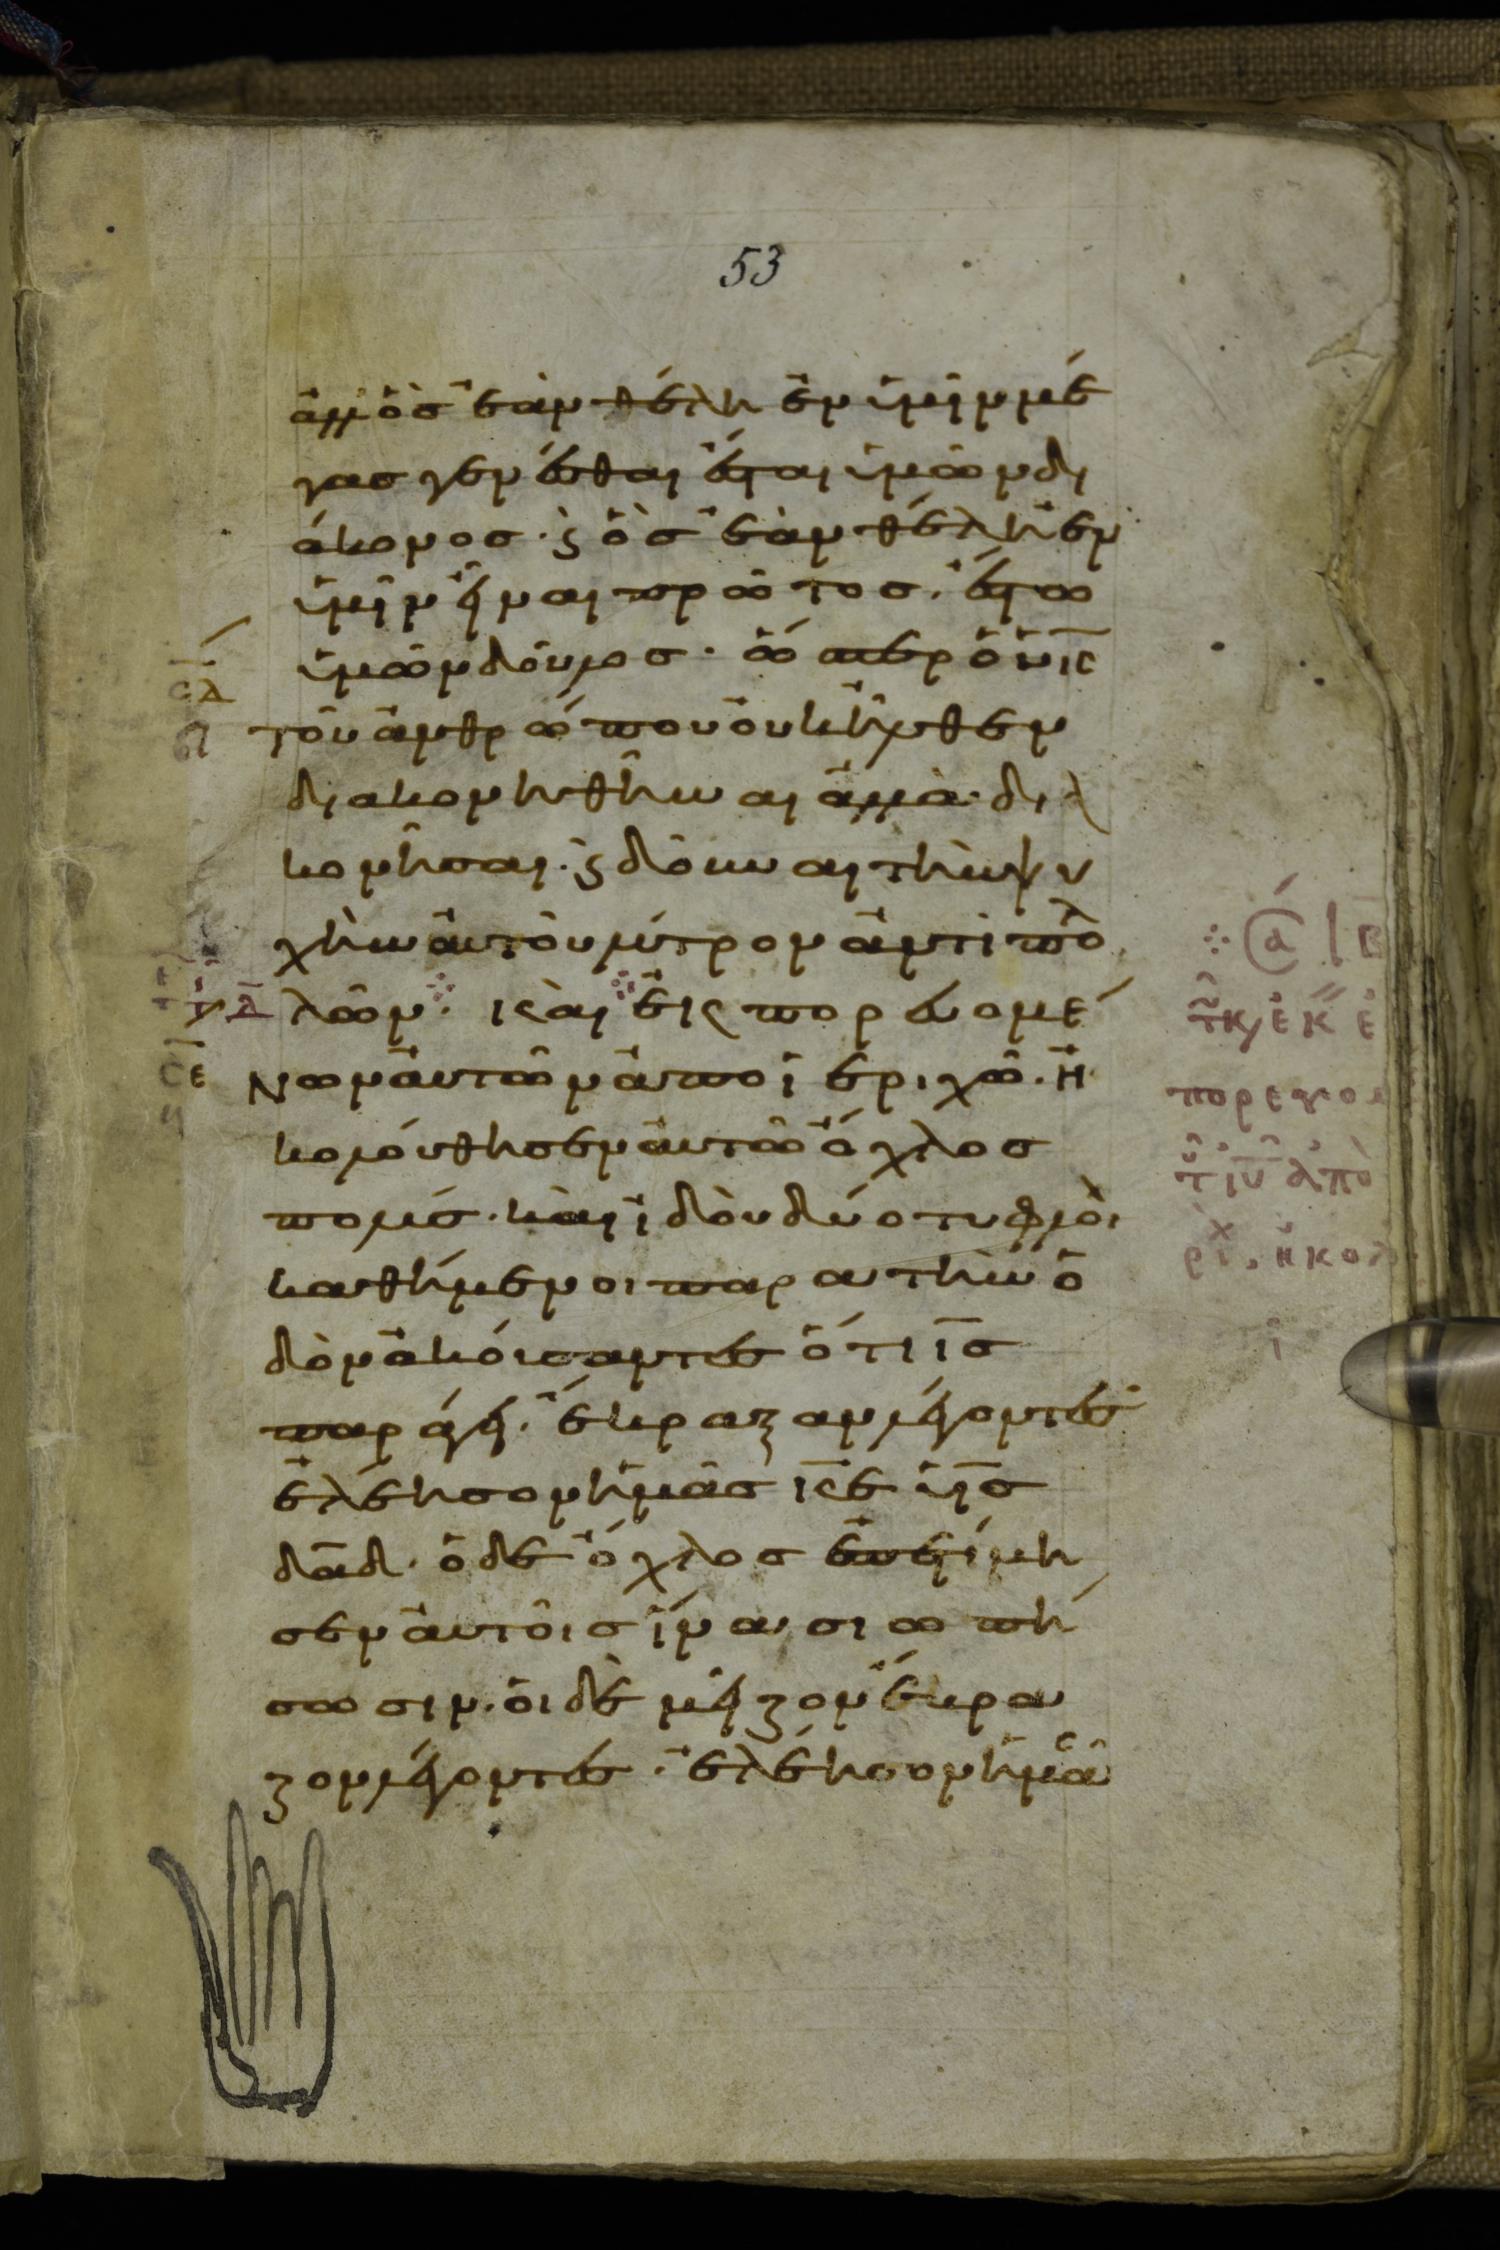 53
ἀλλ' ὃς ἐὰν θέλη ἐν ὑμῖν μέ
γας γενέσθαι ἔσται ὑμῶν δι
άκονος· ϗ ὃς ἐὰν θέλη ἐν
ὑμῖν εἶναι πρῶτος, ἔστω
ὑμῶν δοῦλος· ὥσπερ ὁ υἱς
τοῦ ἀνθρώπου οὐκ ἦλθεν
διακονηθῆναι ἀλλὰ δια
κονῆσαι· ϗ δοῦναι τὴν ψυ
χὴν αὐτοῦ λύτρον ἀντὶ πολ
λῶν· καὶ ἐκπορευομέ
νων αὐτῶν ἀπὸ ἱεριχῶ· ἠ
κολούθησεν αὐτῶ ὄχλος
πολύς· καὶ ἰδοὺ δύο τυφλοὶ
καθήμενοι παρα τὴν ὁ
δὸν ἀκούσαντες ὅτι ις
παράγει· ἔκραξαν λέγοντες
ἐλέησον ἡμᾶς ιυ υἱς
δαδ· ὁ δὲ ὄχλος ἐπετίμη
σεν αὐτοῖς ἵνα σιωπή
σωσιν· οἱ δὲ μεῖζον ἔκρα
ζον λέγοντες· ἐλέησον ἡμᾶς
σδ
σε
πορευο
ἀπὸ
ρι